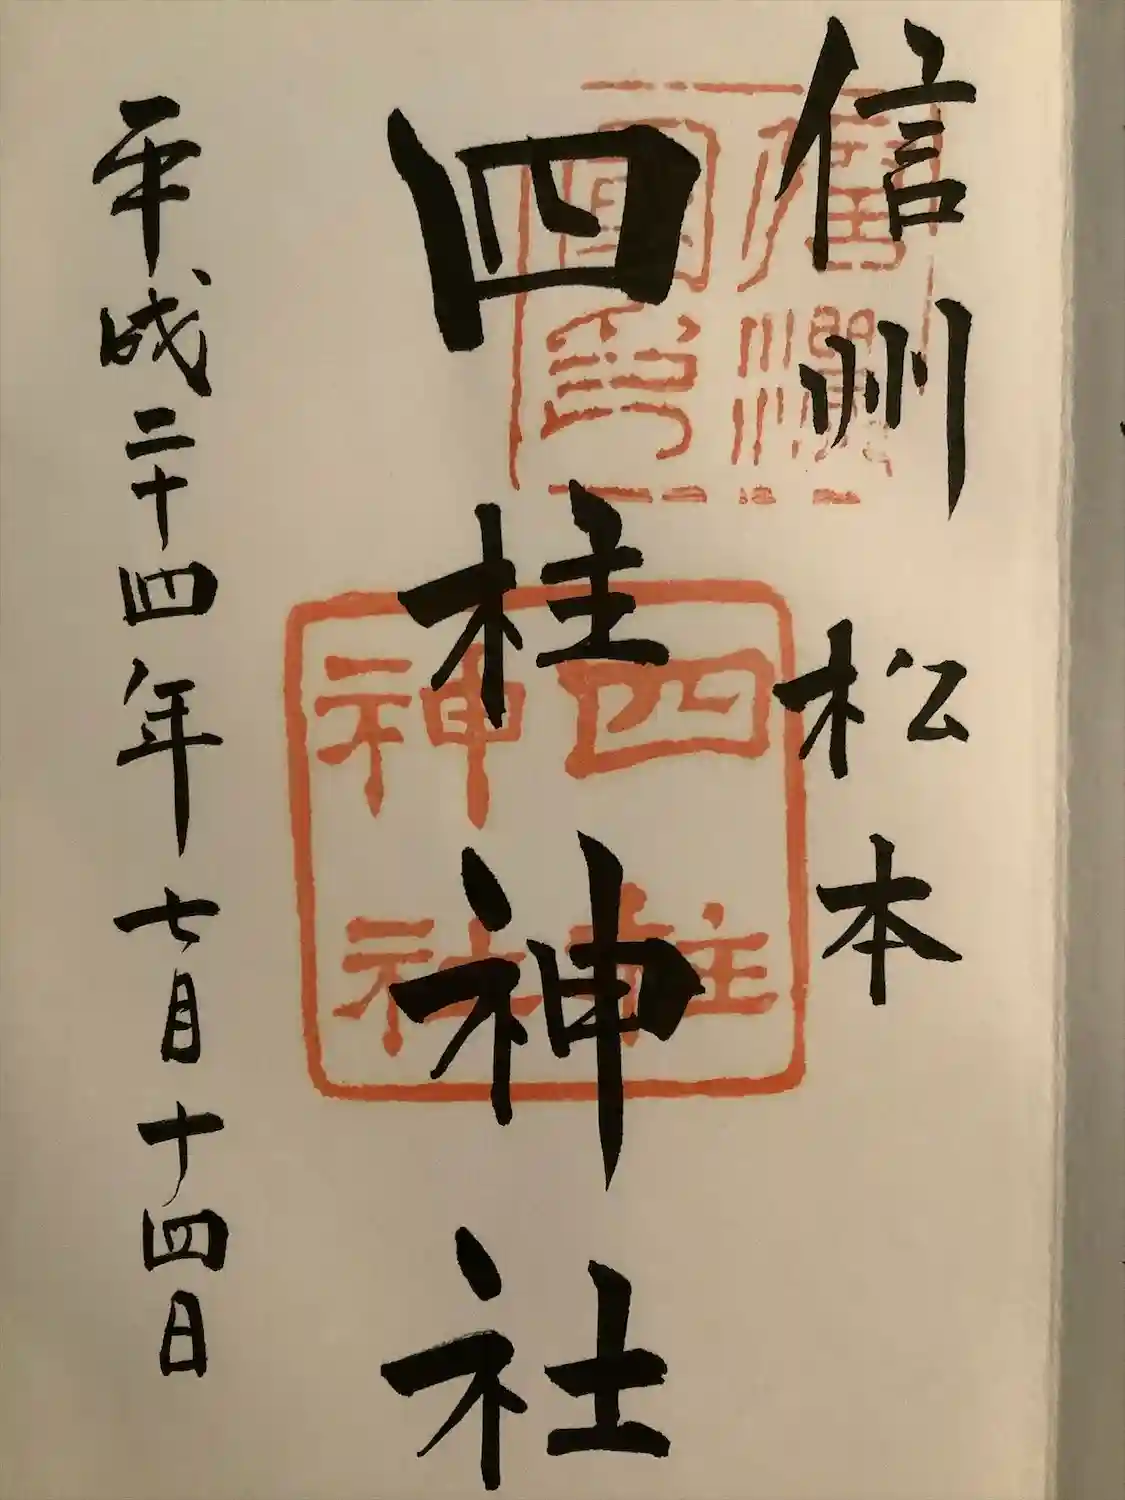 信州 松本
四柱神社
四柱
神社
平成二十四年七月十四日